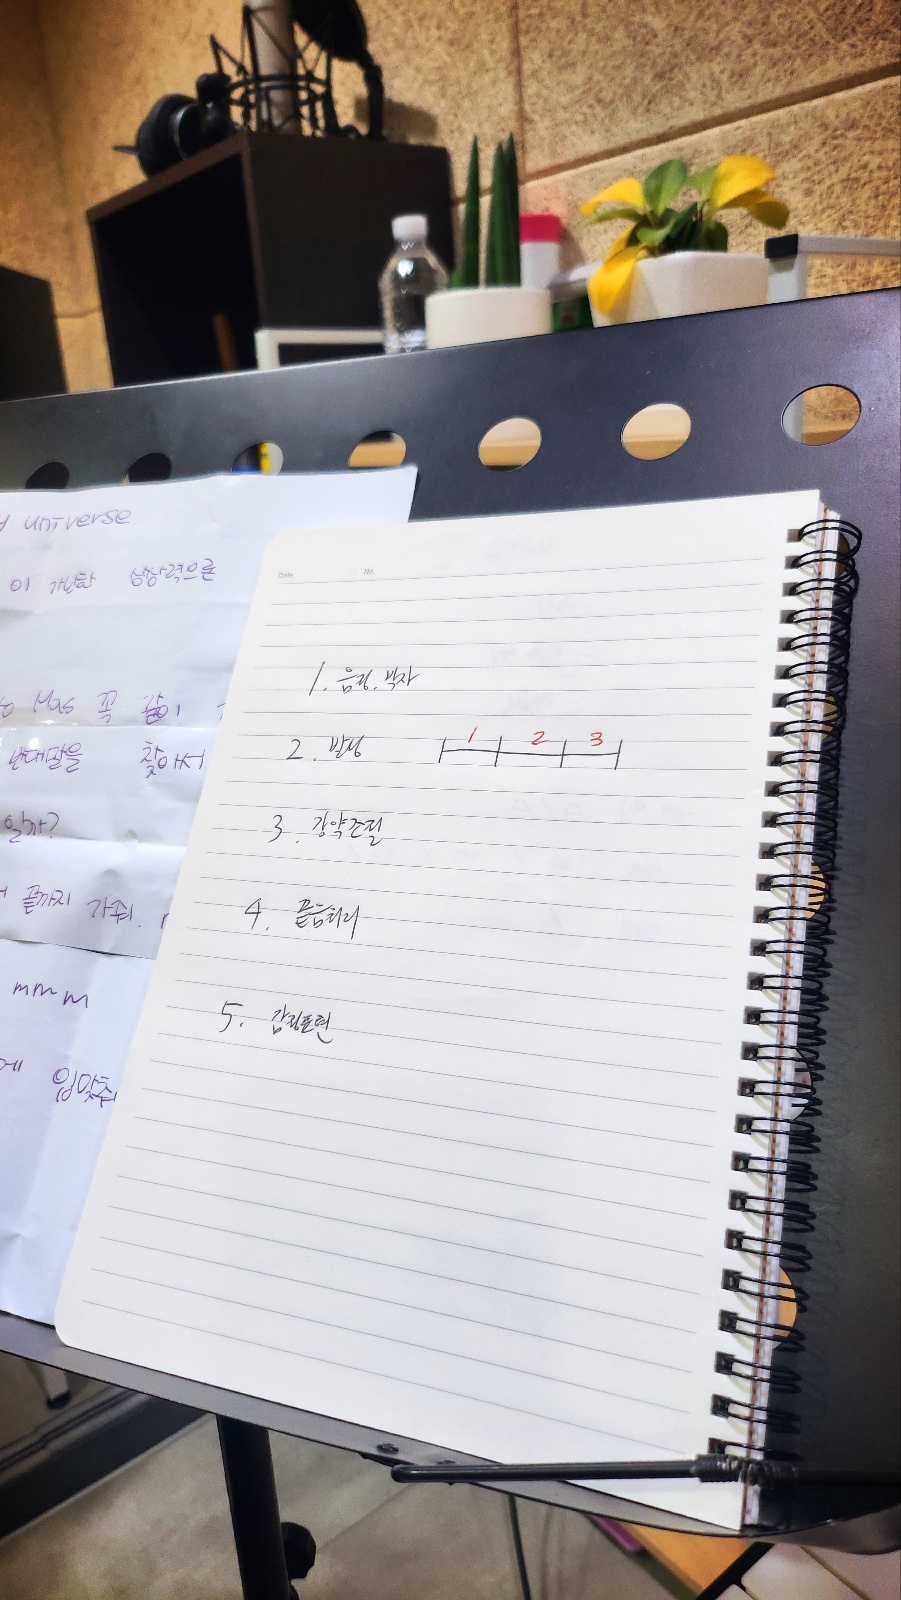 y universe
이 가난한 상상력으론
Mas 꼭 같이
반대말을 찾아서
일까?
끝까지 가줘.
mmm
에 입맞춰
Date. No.
1. 음정. 박자
2. 발성 1 2 3
3. 강약조절
4. 끝음처리
5. 감정표현